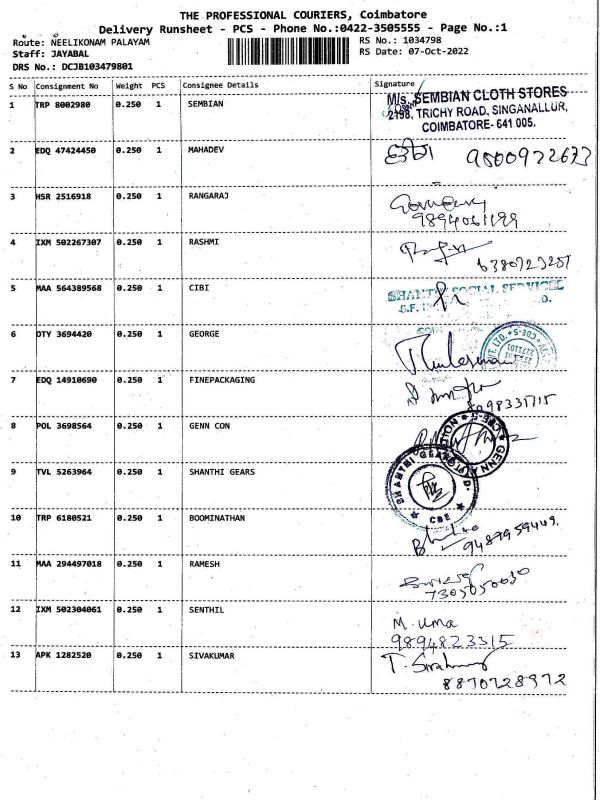 THE PROFESSIONAL COURIERS, Coimbatore
Delivery Runsheet - PCS - Phone No.:0422-3505555 - Page No.:1
Route: NEELIKONAM PALAYAM RS No.: 1034798
Staff: JAYABAL RS Date: 07-Oct-2022
DRS No.: DCJB103479801
S No Consignment No Weight PCS Consignee Details Signature
1 TRP 8002980 0.250 1 SEMBIAN M/s. SEMBIAN CLOTH STORES
2198, TRICHY ROAD, SINGANALLUR,
COIMBATORE- 641 005.
2 EDQ 47424450 0.250 1 MAHADEV
3 HSR 2516918 0.250 1 RANGARAJ
9894061199
4 IXM 502267307 0.250 1 RASHMI
6380723251
5 MAA 564389568 0.250 1 CIBI SHANTHI SOCIAL SERVICES
6 DTY 3694420 0.250 1 GEORGE
7 EDQ 14910690 0.250 1 FINEPACKAGING
8098331715
8 POL 3698564 0.250 1 GENN CON
9 TVL 5263964 0.250 1 SHANTHI GEARS
CBE
10 TRP 6180521 0.250 1 BOOMINATHAN
9487959449
11 MAA 294497018 0.250 1 RAMESH
7305050030
12 IXM 502304061 0.250 1 SENTHIL M. Uma
9894823315
13 APK 1282520 0.250 1 SIVAKUMAR
8870728972